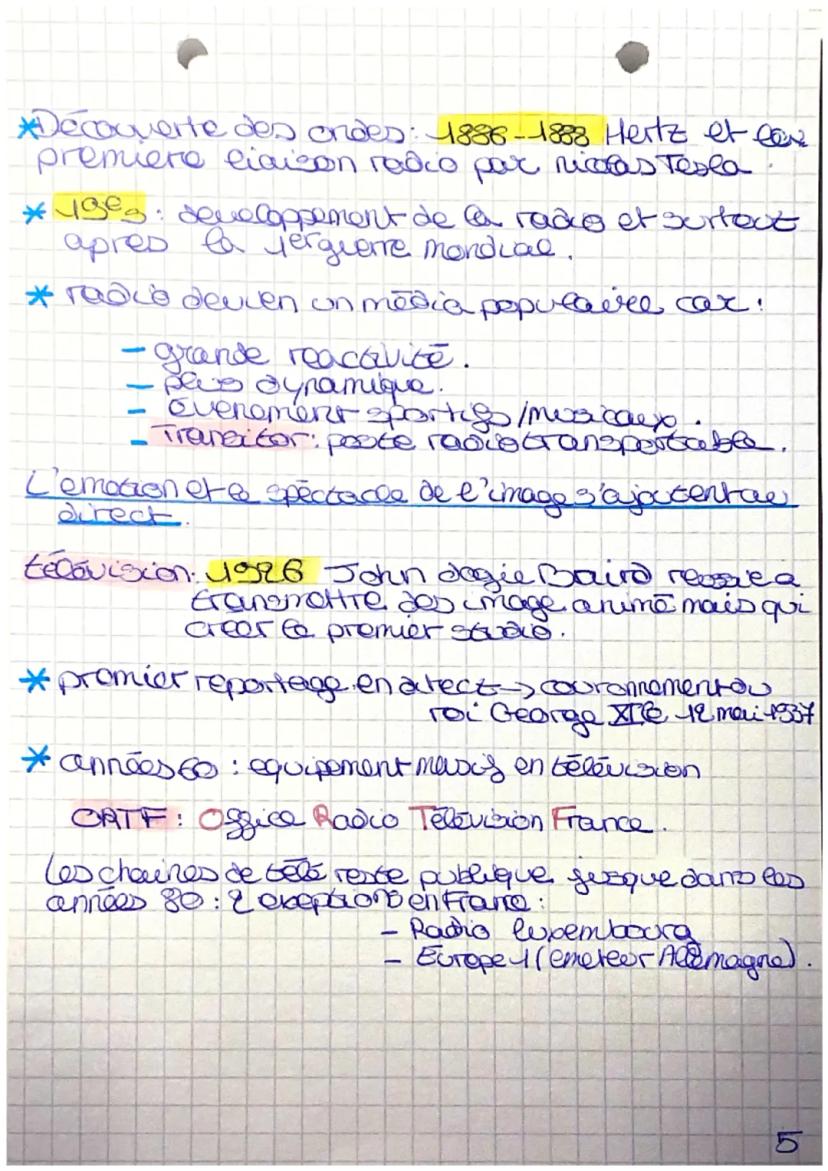 *Découverte des ondes: 1886-1888 Hertz et la
première liaison radio par nicolas Tesla.
* 19e s: developpement de la radio et surtout
après la 1erguerre mondial.
* radio devien un média populaire car:
- grande reactivité.
- plus dynamique.
- évenement sportifs/musicaux.
- Transitor: poste radio transportable.
L'emotion et le spéctacle de l'image s'ajoutent au
direct.
télévision: 1926 John logie Baird reussie a
transmettre des image animé mais qui
creer le premier studio.
* premier reportage en direct → couronnement du
roi George 12 mai 1937
* années 60: equipement massif en télévision
ORTF: Office Radio Télévision France.
Les chaines de télé reste publique jusque dans les
années 80: 2 exeptions en France:
- Radio luxembourg
- Europe 1 (emeteur Allemagne).
5